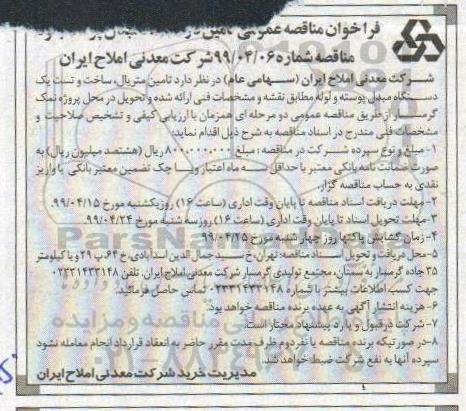 فراخوان مناقصه عمومی تامین
مناقصه شماره ۹۹/۰۴/۰۶ شرکت معدنی املاح ایران
شرکت معدنی املاح ایران (سهامی عام) در نظر دارد تامین متریال، ساخت و تست یک
دستگاه مبدل پوسته و لوله مطابق نقشه و مشخصات فنی ارائه شده و تحویل در محل پروژه نمک
گرمسار از طریق مناقصه عمومی دو مرحله ای همزمان با ارزیابی کیفی و تشخیص صلاحیت و
مشخصات فنی مندرج در اسناد مناقصه به شرح ذیل اقدام نماید:
۱- مبلغ و نوع سپرده شرکت در مناقصه: مبلغ ۸۰۰،۰۰۰،۰۰۰ ریال (هشتصد میلیون ریال) به
صورت ضمانت نامه بانکی معتبر با حداقل سه ماه اعتبار و یا چک تضمین معتبر بانکی یا واریز
نقدی به حساب مناقصه گزار.
۲- مهلت دریافت اسناد مناقصه تا پایان وقت اداری (ساعت ۱۶) روز یکشنبه مورخ ۹۹/۰۴/۱۵.
۳- مهلت تحویل اسناد تا پایان وقت اداری (ساعت ۱۶) روز سه شنبه مورخ ۹۹/۰۴/۲۴.
۴- زمان گشایش پاکتها روز چهارشنبه مورخ ۹۹/۰۴/۲۵
۵- محل دریافت و تحویل اسناد مناقصه: تهران، خ سید جمال الدین اسدآبادی، خ ۶۴، پ ۲۹ و یا کیلومتر
۳۵ جاده گرمسار به سمنان، مجتمع تولیدی گرمسار شرکت معدنی املاح ایران. تلفن ۰۲۳۳۱۴۳۳۱۴۸
جهت کسب اطلاعات بیشتر با شماره ۰۲۳۳۱۴۳۳۱۴۸ تماس حاصل فرمائید.
۶- هزینه انتشار آگهی به عهده برنده مناقصه خواهد بود.
۷- شرکت در قبول و یا رد پیشنهاد مختار است.
۸- در صورتیکه برنده مناقصه یا نفر دوم ظرف مدت مقرر حاضر به انعقاد قرارداد انجام معامله نشود
سپرده آنها به نفع شرکت ضبط خواهد شد.
مدیریت خرید شرکت معدنی املاح ایران